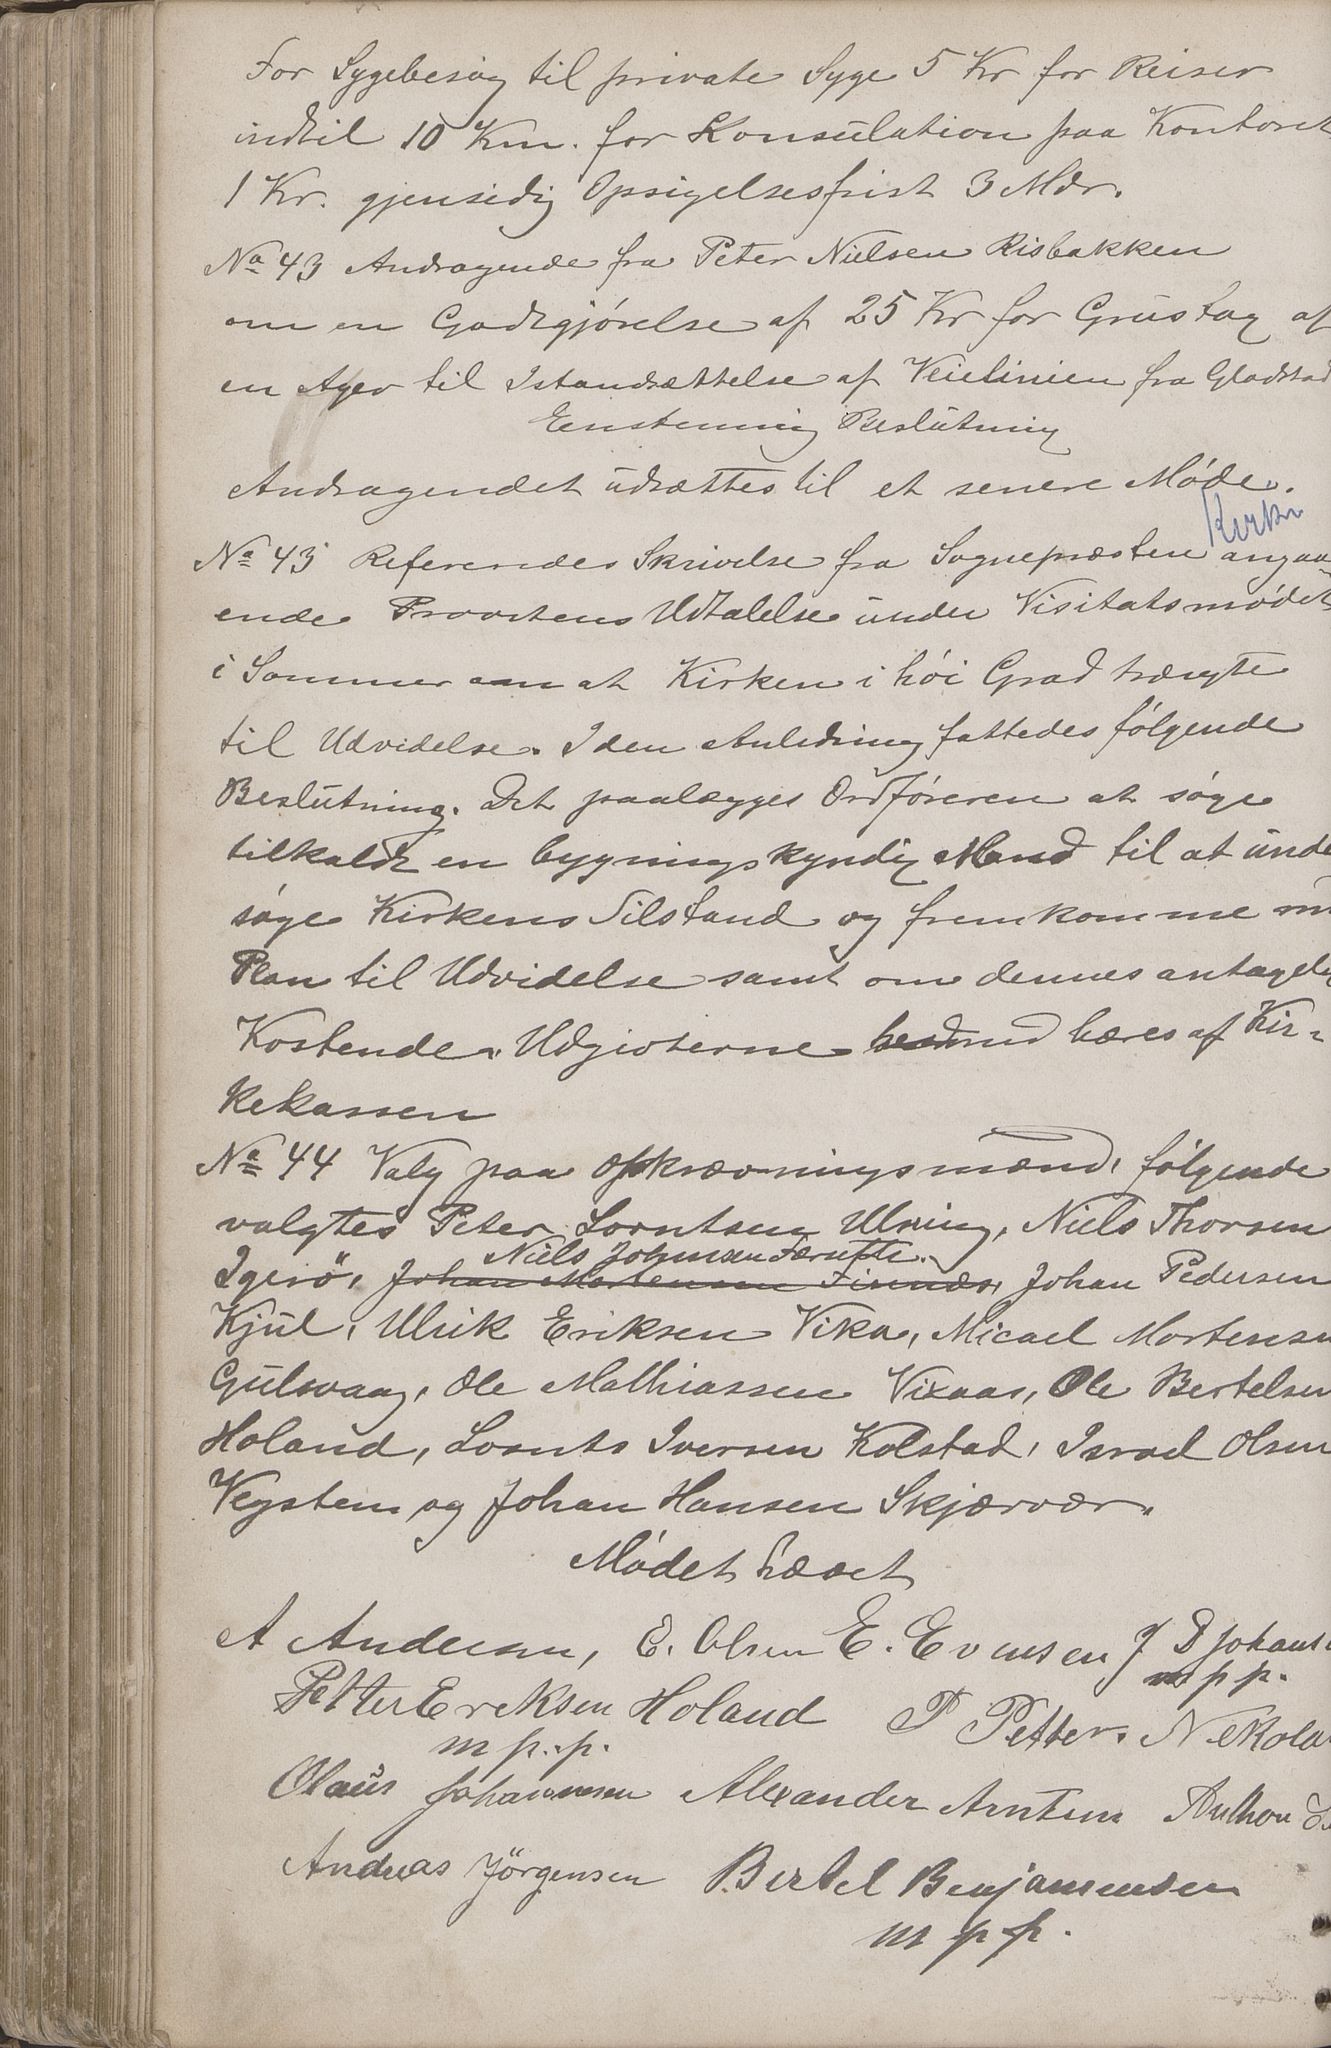 For Sygebesøg til private Syge 5 Kr for Reiser
indtil 10 Km. for Konsulation paa Kontoret
1 Kr. gjensidig Opsigelsesfrist 3 Mdr.
No 43 Andragende fra Peter Nielsen Risbakken
om en Godtgjørelse af 25 Kr for Grustag af
en Ager til Istandsættelse af Veielinien fra Gladstad
Enstemmig Beslutning
Andragendet udsættes til et senere Møde.
Kirke
No 43 Referendes Skrivelse fra Sognepræsten angaa-
ende Provstens Udtalelse under Visitatsmødet
i Sommer om at Kirken i høi Grad trængte
til Udvidelse. I den Anledning fattedes følgende
Beslutning. Det paalægges Ordføreren at søge
tilkaldt en bygningskyndig Mand til at unde
søge Kirkens Tilstand og fremkomme m
Plan til Udvidelse samt om dennes antagelig
Kostende. Udgivterne bæres af Kir-
kekassen
No 44 Valg paa Opkrævningsmænd, følgende
valgtes Peter Lorntsen Ulsing, Niels Thorsen
Niels Johnsen
Igerø, Johan Mortensen Finnæs, Johan Pedersen
Kjul, Ulrik Eriksen Vika, Micael Mortensen
Gulsvaag, Ole Mathiassen Vixaas, Ole Bertelsen
Holand, Lornts Iversen Kolstad, Israel Olsen
Vegstein og Johan Hansen Skjærvær.
Mødet hævet
A Andersen, E. Olsen E. Evensen J D Johans
m p p.
Petter Ereksen Holand P Petter. Nekola
m p. p.
Olaus Johannesen Alexander Arntsen Anthon
Andreas Jörgensen Bertel Benjamensen
m p p.